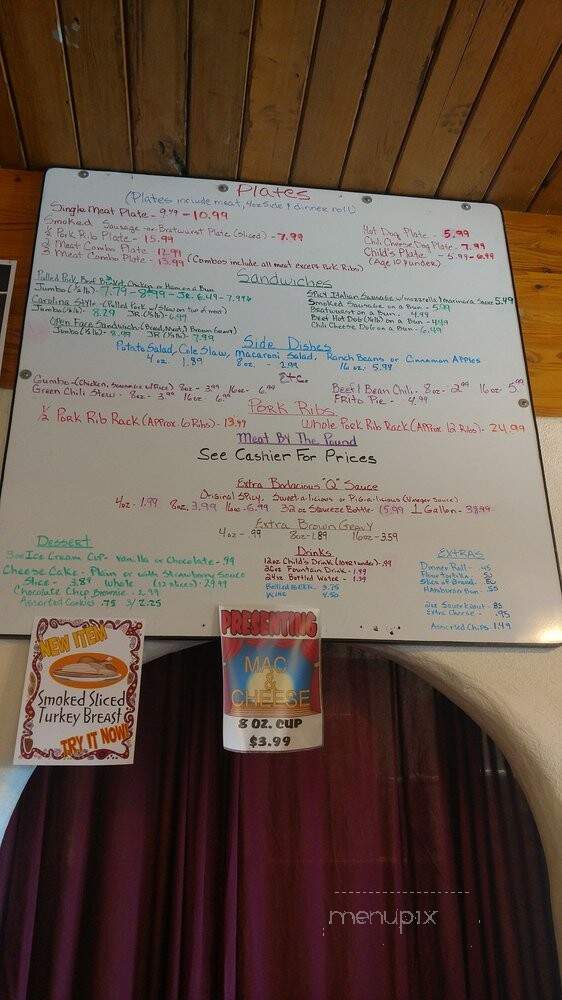 Plates
(Plates include meat, 4oz Side & dinner roll)
Single Meat Plate - 9.49 - 10.99
Smoked Sausage or Bratwurst Plate (Sliced) - 7.99
½ Pork Rib Plate - 15.99
2 Meat Combo Plate 12.99
3 Meat Combo Plate - 13.99 (Combos include all meat except Pork Ribs)
Hot Dog Plate - 5.99
Chili Cheese Dog Plate - 7.99
Child's Plate - 5.99 - 6.99
(Age 10 & under)
Sandwiches
Pulled Pork, Beef Brisket, Chicken or Ham on a Bun
Jumbo (½ lb) 7.79 - 8.99 - JR. 6.49 - 7.99
Carolina Style - (Pulled Pork w/ Slaw on top of meat)
Jumbo (½ lb) 8.29 JR (¼ lb) 6.99
Open Face Sandwich (Bread, Meat & Brown Gravy)
Jumbo (½ lb) - 8.99 JR (¼ lb) 7.99
Spicy Italian Sausage w/ mozzarella & marinara Sauce 5.49
Smoked Sausage on a Bun - 5.99
Bratwurst on a Bun - 4.99
Beef Hot Dog (¼ lb) on a Bun - 4.49
Chili Cheese Dog on a Bun - 6.49
Side Dishes
Potato Salad, Cole Slaw, Macaroni Salad, Ranch Beans or Cinnamon Apples
4 oz. 1.89 8 oz. 2.99 16 oz. 5.98
Gumbo - (Chicken, Sausage w/ Rice) 8oz - 3.99 16oz - 6.99
Green Chili Stew - 8oz - 3.99 16oz 6.99
Beef & Bean Chili - 8oz - 2.99 16oz 5.99
Frito Pie - 4.99
Pork Ribs
½ Pork Rib Rack (Approx. 6 Ribs) - 13.99 Whole Pork Rib Rack (Approx 12 Ribs) - 24.99
Meat By The Pound
See Cashier For Prices
Extra Bodacious "Q" Sauce
Original Spicy, Sweet-a-licious or Pig-a-licious (Vinegar Sauce)
4oz - 1.99 8oz. 3.99 16oz - 6.99 32 oz Squeeze Bottle - 15.99 1 Gallon - 38.99
Extra Brown Gravy
4oz - .99 8oz - 1.89 16oz - 3.59
Dessert
3oz Ice Cream Cup - Vanilla or Chocolate - .99
Cheese Cake - Plain or with Strawberry Sauce
Slice - 3.89 Whole (12 slices) - 29.99
Chocolate Chip Brownie - 2.99
Assorted Cookies .75 3/2.25
Drinks
12oz Child's Drink (10yr & under) - .99
32oz Fountain Drink - 1.99
24oz Bottled Water - 1.39
Bottled Beer - 3.75
Wine 4.50
EXTRAS
Dinner Roll - .45
Flour Tortilla -
Slice of Bread
Hamburger Bun .55
2oz Sauerkraut - .85
Extra Cheese - .95
Assorted Chips 1.49
NEW ITEM
Smoked Sliced
Turkey Breast
TRY IT NOW!
PRESENTING
MAC
&
CHEESE
8 OZ. CUP
$3.99
menupix